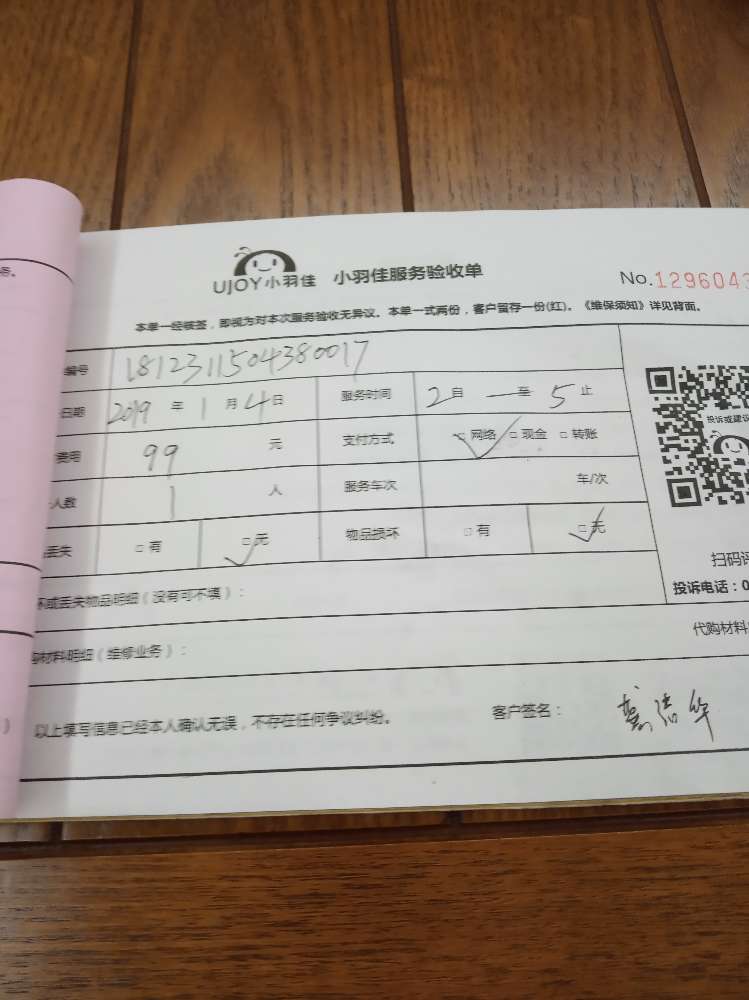 UJOY小羽佳 小羽佳服务验收单 No.129604
本单一经被签，即视方对本次服务验收无异议。本单一式两份，客户留存一份(红)。《维保须知》详见背面。
编号 1812311504380017
日期 2019 年 1 月 4 日 服务时间 2 自 一 至 5 止
费用 99 元 支付方式 □ 网络 □ 现金 □ 转账
人数 1 人 服务车次 车/次
丢失 □ 有 □ 无 物品损坏 □ 有 □ 无
投诉或建议
扫码评
坏或丢失物品明细（没有可不填）：
投诉电话：0
购材料明细（维修业务）：
代购材料
以上填写信息已经本人确认无误，不存在任何争议纠纷。 客户签名：
务。